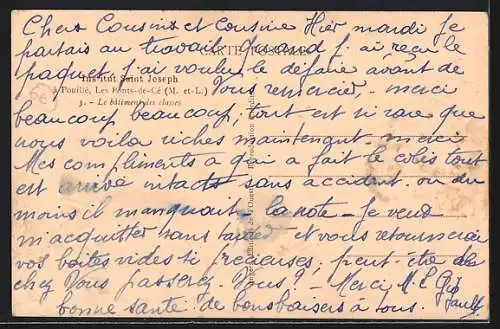 Chers Cousins et Cousine Hier mardi je
CARTE POSTALE
partais au travail quand j'ai reçu le
paquet, j'ai voulu le défaire avant de
Institut Saint Joseph
à Pouillé, Les Ponts-de-Cé (M. et-L.)
3. - Le bâtiment des classes
Vous remercier, merci
beaucoup beaucoup, tout est si rare que
nous voila riches maintenant. merci
Mes compliments a qui a fait le colis tout
est arrivé intacts sans accident. ou du
moins il manquait - la note - Je veux
m'acquitter sans tarder et vous retournerai
vos boites vides si recevuses, peut être de
chez Vous passerez Vous? - Merci M. L.
bonne santé. de bons baisers à tous.